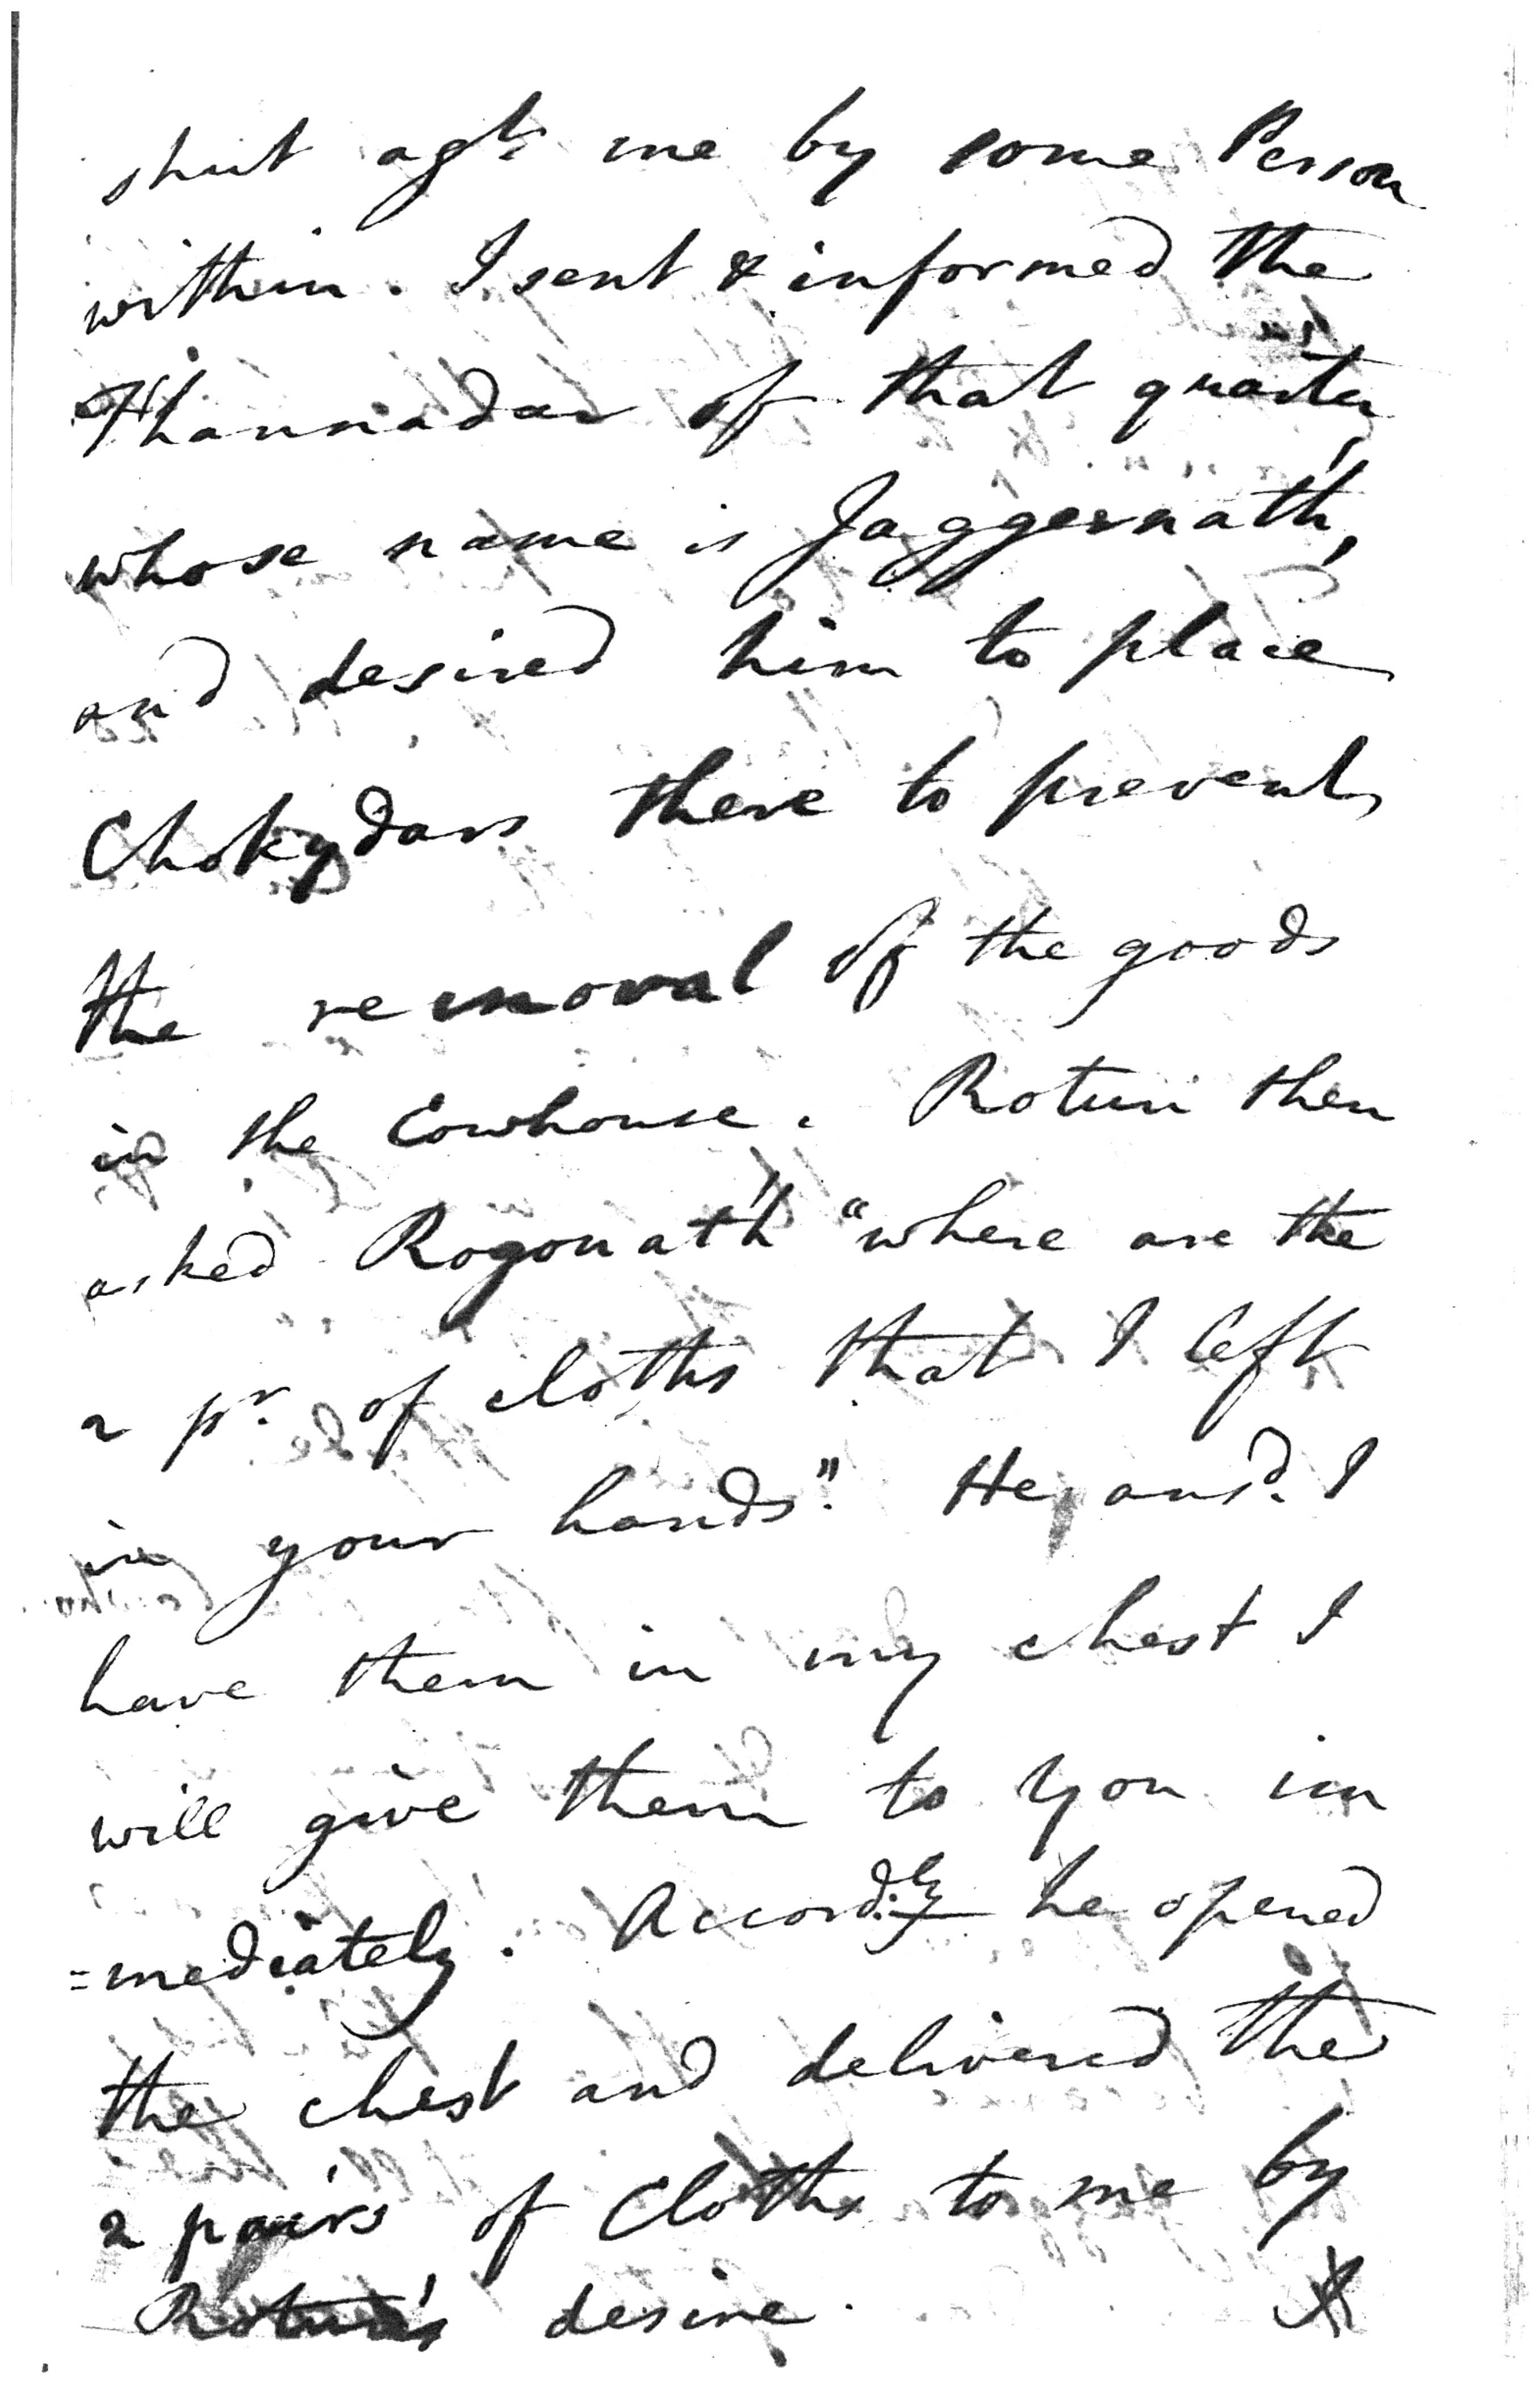 shut agt. me by some Person
within. I sent & informed the
Thannadar of that quarter,
whose name is Jaggernath,
and desired him to place
Chokydars there to prevent
the removal of the goods
in the Cowhouse. Rotun then
asked Rogonath "where are the
2 pr. of cloths that I left
in your hands". He ansd. I
have them in my chest I
will give them to you im
=mediately. Accordly he opened
the chest and delivered the
2 pairs of Cloths to me by
Rotun's desire. X